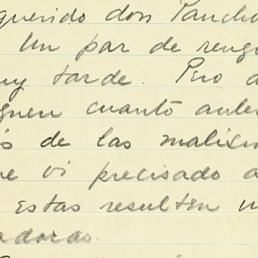 querido don Pancho
Un par de reng
uy tarde. Pero a
guen cuanto antes
s de las
e vi precisado a
Estas resulten
adoras.